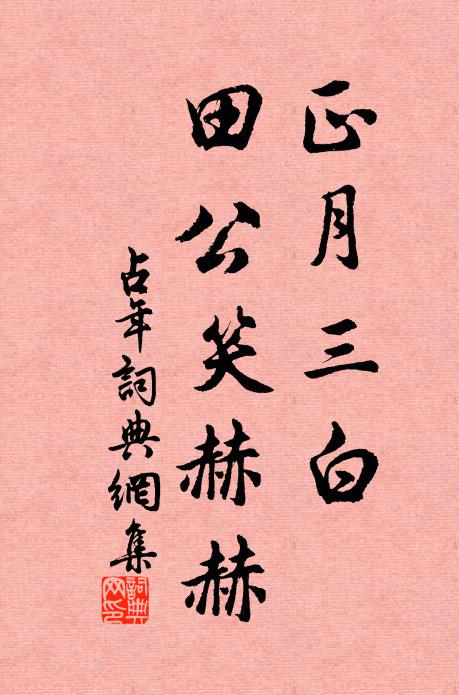 正月三白
田公笑赫赫
占年詞典網集
詞典
网印